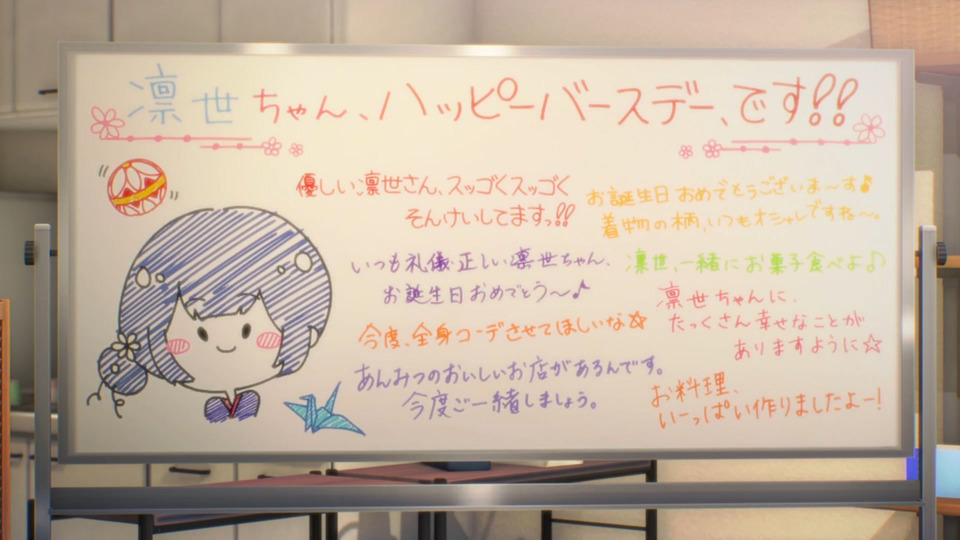 凛世ちゃん、ハッピーバースデー、です!!
優しい凛世さん、スッゴくスッゴく
そんけいしてますっ!!
お誕生日おめでとうございま〜す♪
着物の柄、いつもオシャレですね〜。
いつも礼儀正しい凛世ちゃん、
お誕生日おめでとう〜♪
凛世、一緒にお菓子食べよ♪
今度、全身コーデさせてほしいな☆
凛世ちゃんに、
たっくさん幸せなことが
ありますように☆
あんみつのおいしいお店があるんです。
今度ご一緒しましょう。
お料理、
いーっぱい作りましたよー!